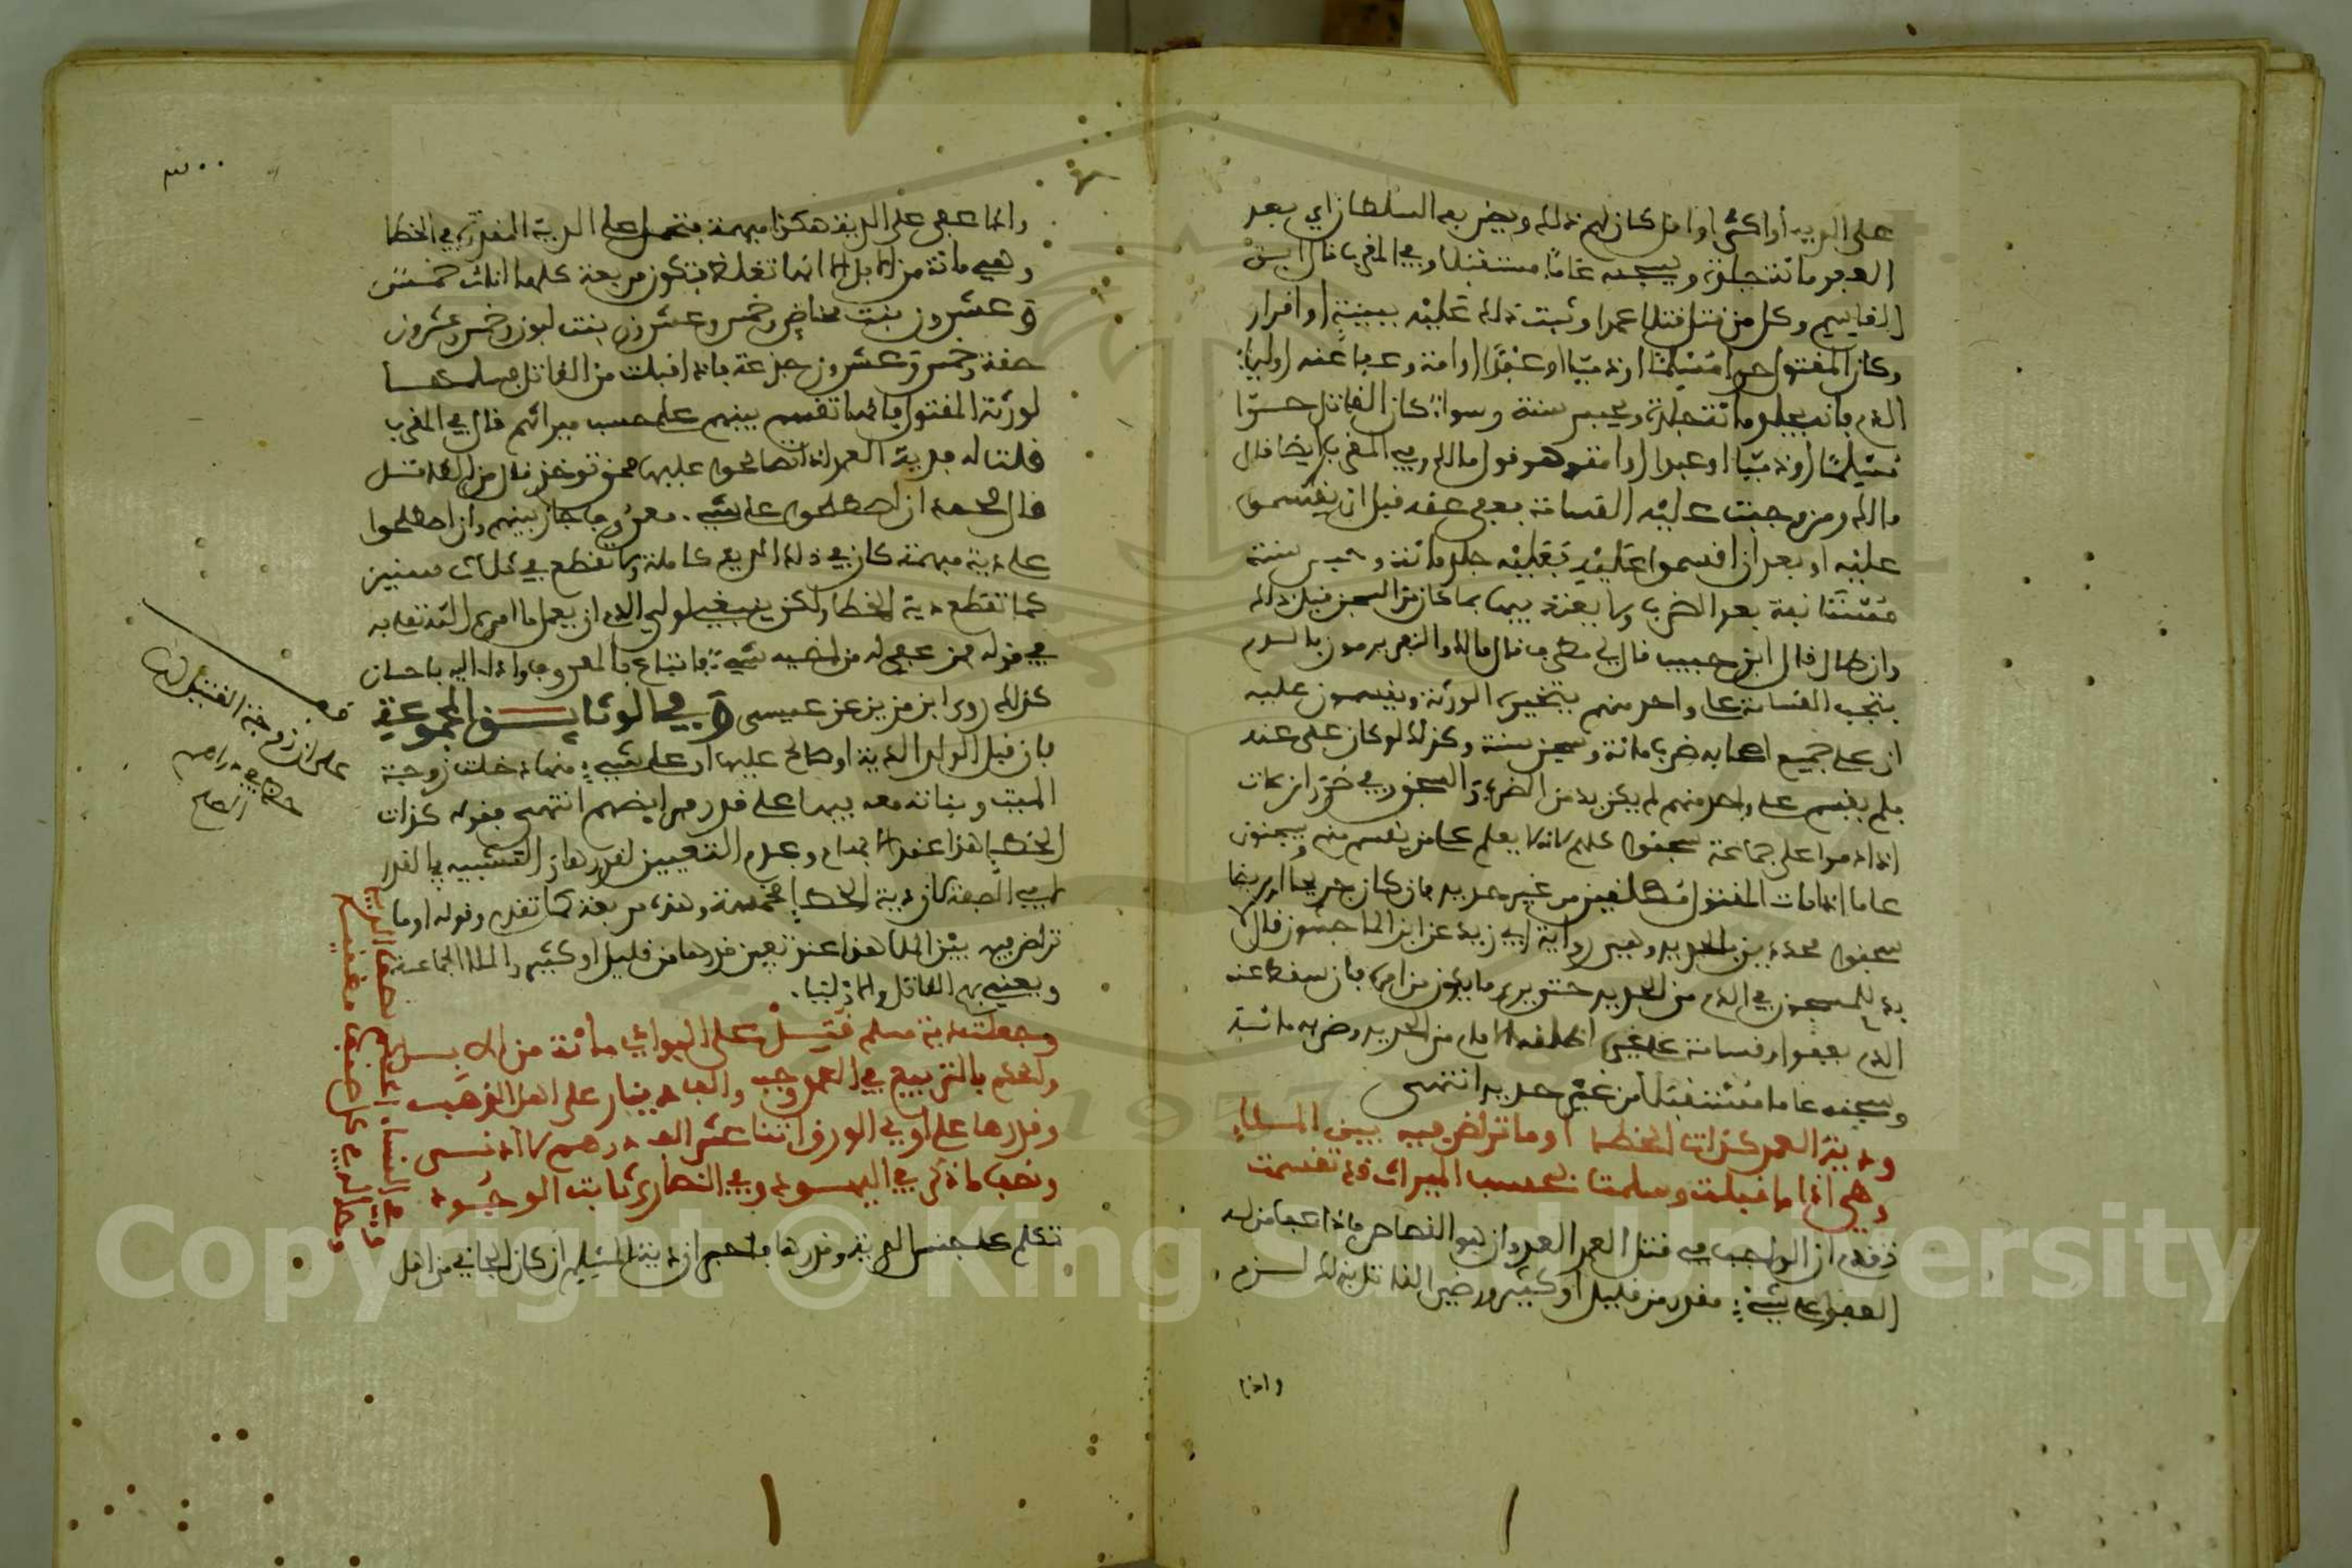 على الدية أو اكثر او اقل كان لهم ذلك ويضربه السلطان اي بعد
العفو مائة جلدة ويسجنه عاما مستقبلا وفي المقرب قال ابن
القاسم وكل من قتل قتلا عمدا وثبت ذلك عليه ببينة او اقرار
وكان المقتول حرا مسلما او ذميا او عبدا او امة وعفا عنه اولياء
الدم فانه يجلد مائة جلدة ويحبس سنة وسواء كان القاتل حرا
مسلما او ذميا او عبدا او امة وهو قول مالك وفي المقرب ايضا قال
مالك ومن وجبت عليه القسامة فعفي عنه قبل ان يقسموا
عليه او بعد ان اقسموا عليه فعليه جلد مائة وحبس سنة
مستانفة بعد الضرب ولا يعتد فيها بما كان من السجن قبل ذالك
وان طال قال ابن حبيب قال لي مطرف قال مالك والنفر يرمون بالدم
فتجب القسامة على واحد منهم بتخيير الورثة ويقسمون عليه
ان على جميع اصحابه ضرب مائة وسجن سنة وكذلك لو كان على عدد
فلم يقسم على واحد منهم لم يكن بد من الضرب والسجن وفي
اذا ادموا على جماعة سجنوا كلهم لانه لا يعلم على من يقسم منهم ويسجنون
عاما اذا مات المقتول مطلقين من غير حديد فان كان جريحا او مريضا
سجنوا محددين بالحديد وهي رواية ابي زيد عن ابن الماجشون قال لا
بد للمسجون في الدم من الحديد حتى يرى ما يكون من امره فان سقط عنه
الدم بعفو او قسامة على غيره اطلقه الامام من الحديد وضربه مائة
وسجنه عاما مستقبلا من غير حديد انتهى
ودية العمد كذات الخطإ او ما تراضى فيه بين الملإ
وهي اذا ما قبلت وسلمت بحسب الميراث قد تقسمت
قد تقدم ان الواجب في قتل العمد العدوان هو القصاص فاذا عفا من له
العفو على شيء مقدر من قليل او كثير ورضي القاتل بذلك لزم
واذا
واذا عفي على الدية هكذا مبهمة فتحمل على الدية المقدرة في الخطا
وهي مائة من الابل الا انها تغلظ فتكون مربعة كلها اناث خمس
وعشرون بنت مخاض وخمس وعشرون بنت لبون وخمس وعشرون
حقة وخمس وعشرون جذعة فاذا قبلت من القاتل وسلمها
لورثة المقتول فانها تقسم بينهم على حسب ميراثهم قال في المقرب
قلت له فدية العمد اذا اصطلحوا عليها متى توخذ من القاتل
قال محمد ان اصطلحوا على شيء معروف جاز بينهم وان اصطلحوا
على دية مبهمة كان في ذلك التربيع كاملة ولا تقطع في ثلاث سنين
كما تقطع دية الخطا ولكن ينبغي لولي الدم ان يعمل ما امره الله تعالى به
في قوله فمن عفي له من اخيه شيء فاتباع بالمعروف واداء اليه باحسان
كذلك روى ابن مزين عن عيسى وفي الوثايق المجموعة
فان قبل الولي الدية او صالح عليها او على شيء منها دخلت زوجة
الميت وبناته معه فيها على قدر مواريثهم انتهى فقوله كذات
الخطإ هذا عند الابهام وعدم التعيين لقدرها والتشبيه في القدر
لا في الصفة لان دية الخطإ مخمسة وهذه مربعة كما تقدم وقوله او ما
تراضى فيه بين الملا هذا عند تعيين قدرها من قليل او كثير والملا الجماعة
ويعني بهم القاتل والاولياء
وجعلت دية مسلم قتل على البوادي مائة من الابل
والحكم بالتربيع في العمد وجب والف دينار على اهل الذهب
وقدرها على اولي الورق اثنا عشر الف درهم لا ادنى
ونصف ما ذكر في اليهود وفي النصارى ثابت الوجود
تكلم على جنس الدية وقدرها فاخبر ان دية المسلم ان كان الجاني من اهل